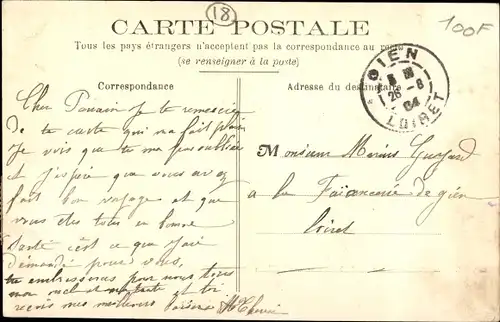 18
100F
CARTE POSTALE
Tous les pays étrangers n'acceptent pas la correspondance au recto
(se renseigner à la poste)
Correspondance
Adresse du destinataire
GIEN
26 -8
04
LOIRET
Cher Parrain Je te remercie
de ta carte qui m'a fait plaisir
Je vois que tu ma pas oubliée
et j'espère que vous avez
fait bon voyage et que
vous êtes tous en bonne
Santé c'est ce que j'ai
demandé pour vous,
tu embrasseras pour nous tous
mon et ma tante et toi
reçois mes meilleurs
Monsieur Marius Guyard
a la Faïencerie de gien
loiret